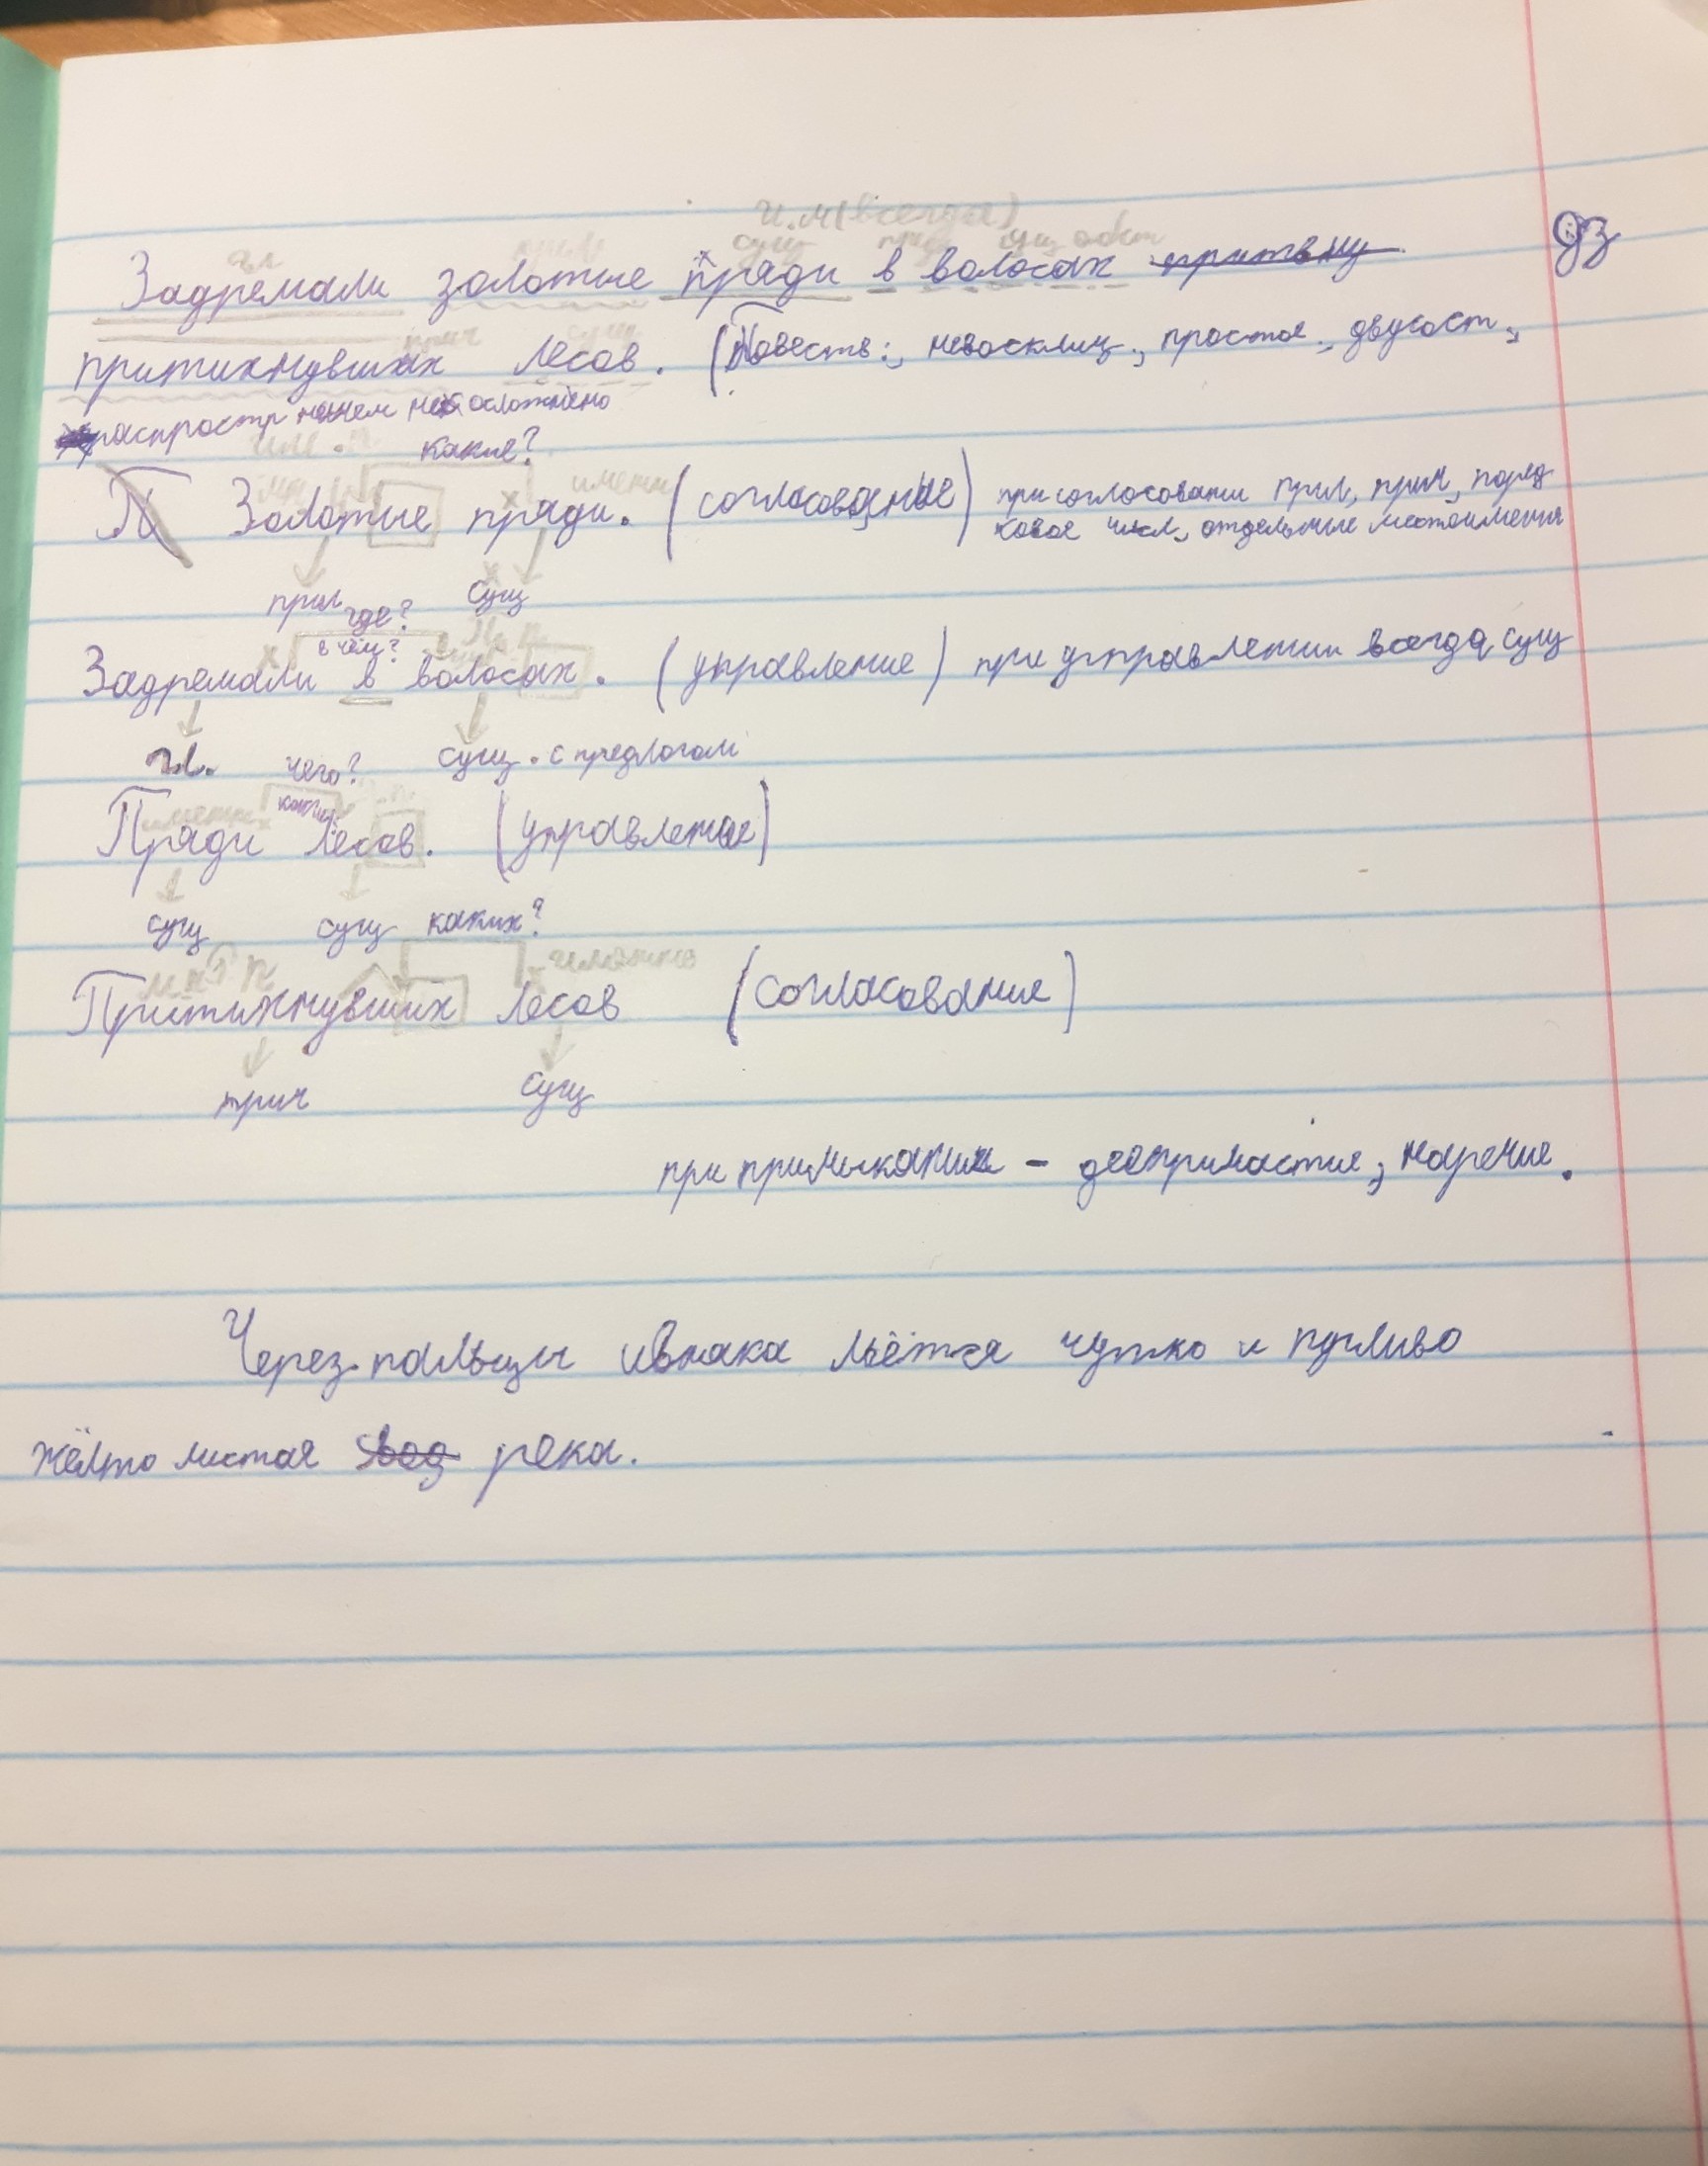 И.п (всегда)
гл прил сущ пред сущ
Задремали золотые пряди в волосах
ДЗ
прич сущ
притихнувших лесов. (Повеств., невосклиц., простое, двусост.,
распростр ничем не осложнено
какие?
Золотые пряди. (согласование) при согласовании прил, прич, поряд
ковое числ, отдельные местоимения
прил сущ
где?
в чём?
Задремали в волосах. (управление) при управлении всегда сущ
гл. сущ. с предлогом
чего?
каких
Пряди лесов. (управление)
сущ сущ
каких?
Притихнувших лесов (согласование)
прич сущ
при примыкании - деепричастие, наречие.
Через пальцы ивняка льётся чутко и пугливо
жёлто листая река.